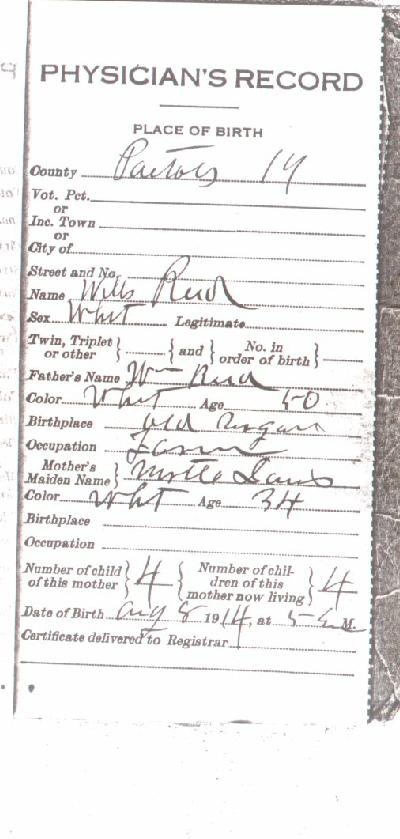 PHYSICIAN'S RECORD
PLACE OF BIRTH
County 14
Vot. Pct.
or
Inc. Town
or
City of
Street and No.
Name Willis Reid
Sex Whit Legitimate
Twin, Triplet or other } { and } { No. in order of birth }
Father's Name Wm Reid
Color Whit Age 50
Birthplace
Occupation Farmer
Mother's Maiden Name } Myrtle
Color Whit Age 34
Birthplace
Occupation
Number of child of this mother } 4 { Number of children of this mother now living } 4
Date of Birth Aug 8 1914, at 5 M.
Certificate delivered to Registrar